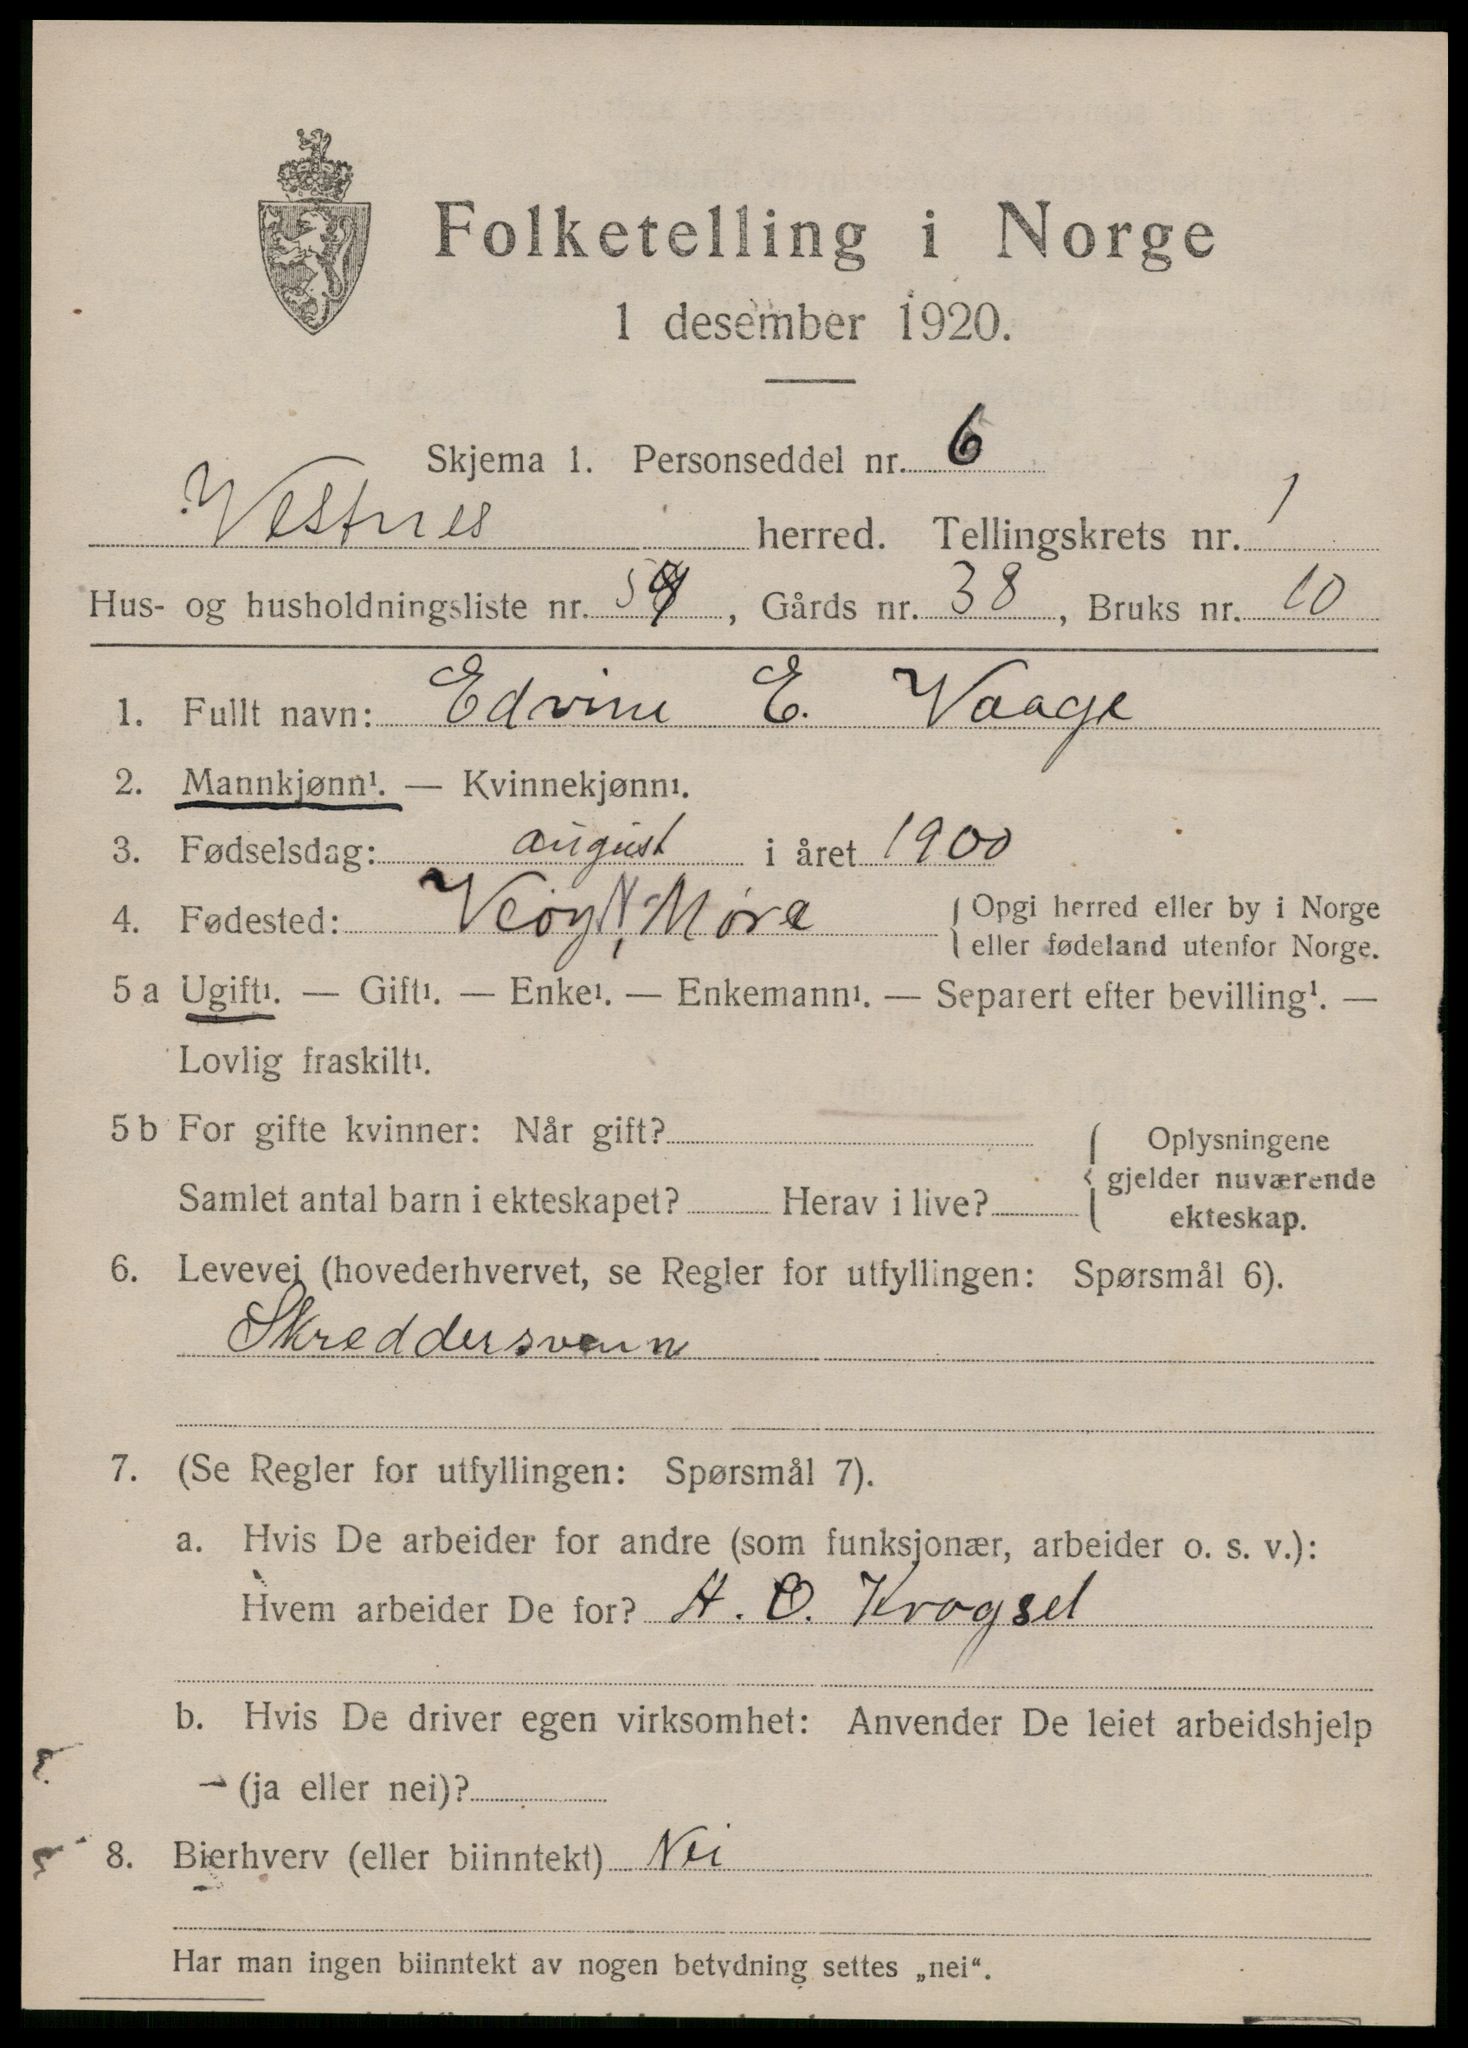 Folketelling i Norge
1 desember 1920.
Skjema 1. Personseddel nr. 6
Vestnes herred. Tellingskrets nr. 1
Hus- og husholdningsliste nr. , Gårds nr. 38, Bruks nr. 10
1. Fullt navn: Edvine E. Vaage
2. Mannkjønn¹. — Kvinnekjønn¹.
3. Fødselsdag: august i året 1900
4. Fødested: Veøy N. Møre { Opgi herred eller by i Norge
eller fødeland utenfor Norge.
5 a Ugift¹. — Gift¹. — Enke¹. — Enkemann¹. — Separert efter bevilling¹. —
Lovlig fraskilt¹.
5 b For gifte kvinner: Når gift? { Oplysningene
gjelder nuværende
Samlet antal barn i ekteskapet? Herav i live?
ekteskap.
6. Levevei (hovederhvervet, se Regler for utfyllingen: Spørsmål 6).
Skreddersvenn
7. (Se Regler for utfyllingen: Spørsmål 7).
a. Hvis De arbeider for andre (som funksjonær, arbeider o. s. v.):
Hvem arbeider De for? H. O. Krogset
b. Hvis De driver egen virksomhet: Anvender De leiet arbeidshjelp
(ja eller nei)?
8. Bierhverv (eller biinntekt) Nei
Har man ingen biinntekt av nogen betydning settes „nei“.